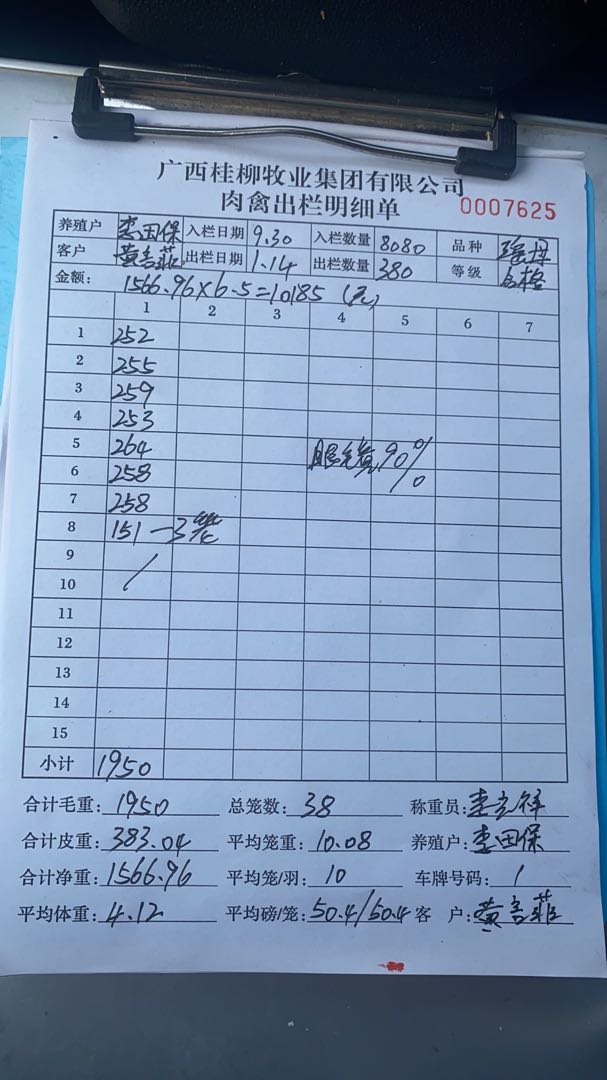 广西桂柳牧业集团有限公司
肉禽出栏明细单 0007625
养殖户 李田保 入栏日期 9.30 入栏数量 8080 品种 瑶丹
客户 黄言菲 出栏日期 1.14 出栏数量 380 等级 合格
金额: 1566.96×6.5=10185 (元)
1 2 3 4 5 6 7
1 252
2 255
3 259
4 253
5 264 90%
6 258
7 258
8 151 — 3笼
9
10 /
11
12
13
14
15
小计 1950
合计毛重: 1950 总笼数: 38 称重员: 李立祥
合计皮重: 383.04 平均笼重: 10.08 养殖户: 李田保
合计净重: 1566.96 平均笼/羽: 10 车牌号码: /
平均体重: 4.12 平均磅/笼: 50.4/50.4 客 户: 黄言菲